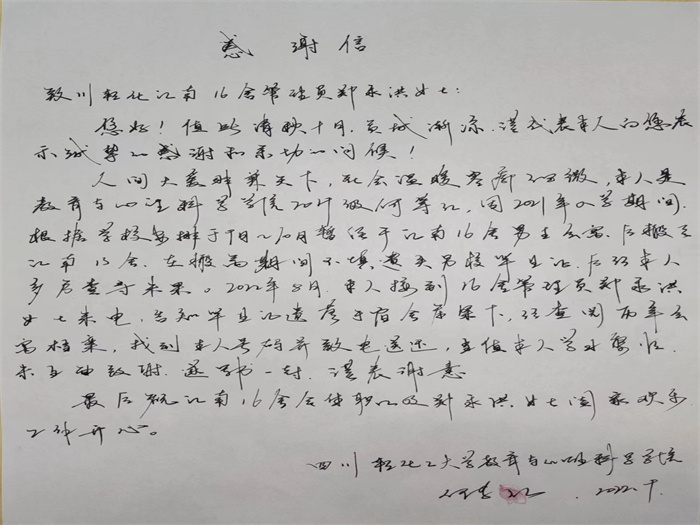 感谢信
致川轻化江南16舍管理员郑永洪女士:
您好!值此清秋十月,蓉城渐凉,谨代表本人向您表
示诚挚的感谢和亲切的问候!
人间大爱胖兼天下,社会温暖尽 微,本人是
教育与心理科学学院2021级何 ,因2021年入学期间
根据学校安排于9月 暂住于江南16舍男生公寓,后搬至
江南15舍,在搬离期间不慎遗失另校毕业证,后经本人
多方查寻未果。2022年8月,本人接到16舍管理员郑永洪
女士来电,告知毕业证遗落于宿舍床架下,经查阅两年公
寓档案,找到本人号码并致电送还,当值本人学业 归,
未 致谢,遂书一封,谨表谢意
最后祝江南16舍全体职工及郑永洪女士阖家欢乐
工作开心。
四川轻化工大学教育与心理科学学院
何 2022.9.